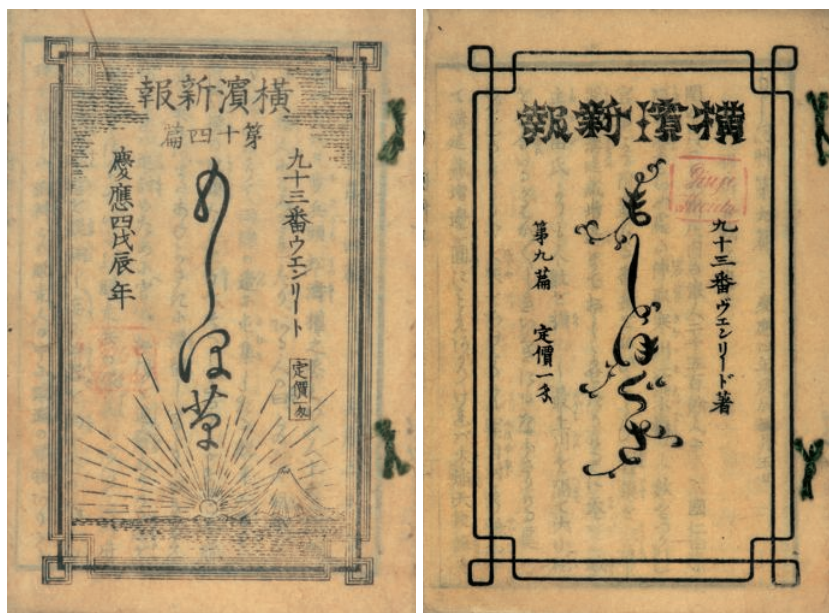 橫濱新報
第十四篇
九十三番ウエンリート
もしほ草
定價一匁
慶應四戊辰年
橫濱新報
九十三番ヴエンリード著
もしほぐさ
第九篇 定價一匁